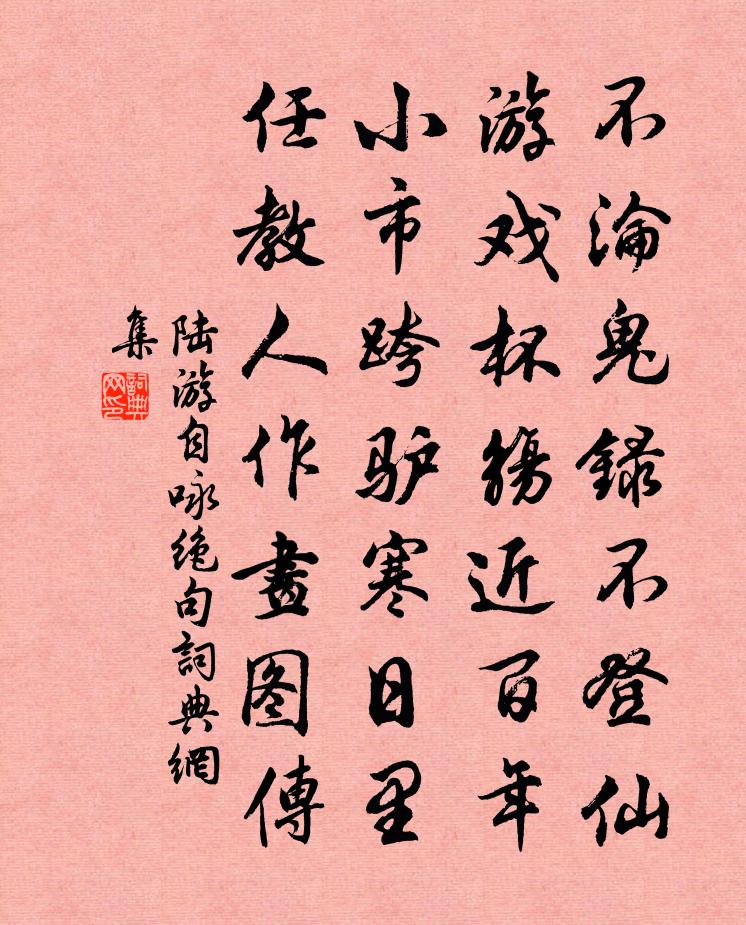 不淪鬼録不登仙
游戏杯觞近百年
小市跨驴寒日里
任教人作畫图傳
陆游自咏绝句詞典網
集
詞典
网印